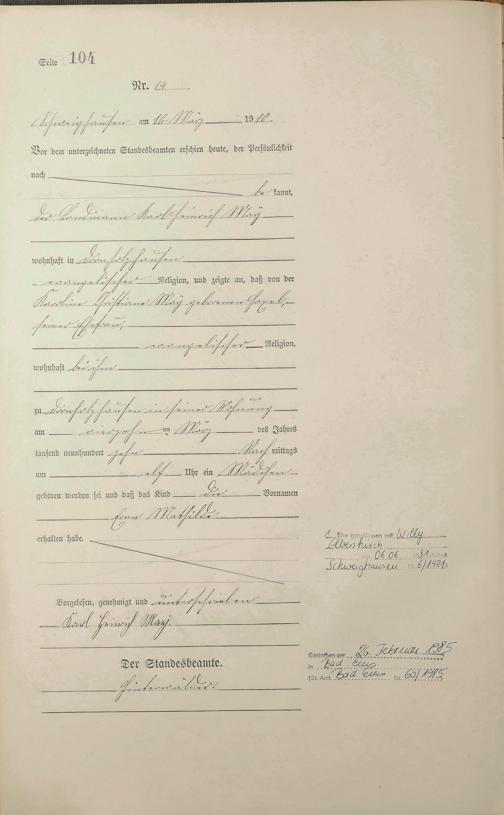 Seite 104
Nr. 14
Schweighausen am 16. März 1910.
Vor dem unterzeichneten Standesbeamten erschien heute, der Persönlichkeit
nach
be kannt,
der Landmann Karl Heinrich May
wohnhaft in Dornholzhausen
evangelischer Religion, und zeigte an, daß von der
Karoline Christiane May geborenen
seiner Ehefrau,
evangelischer Religion,
wohnhaft bei ihm
zu Dornholzhausen in seiner Wohnung
am vierzehn ten März des Jahres
tausend neunhundert zehn Nach mittags
um elf Uhr ein Mädchen
geboren worden sei und daß das Kind die Vornamen
Erna Mathilde
erhalten habe.
Vorgelesen, genehmigt und unterschrieben
Karl Heinrich May.
Der Standesbeamte.
Hinterwälder.
1. Ehe geschlossen mit Willy
Elberskirch
am 06.06. 1931
Schweighausen Nr. 6/1931
Gestorben am 26. Februar 1985
in Bad Ems
(St. Amt Bad Ems Nr. 60/1985